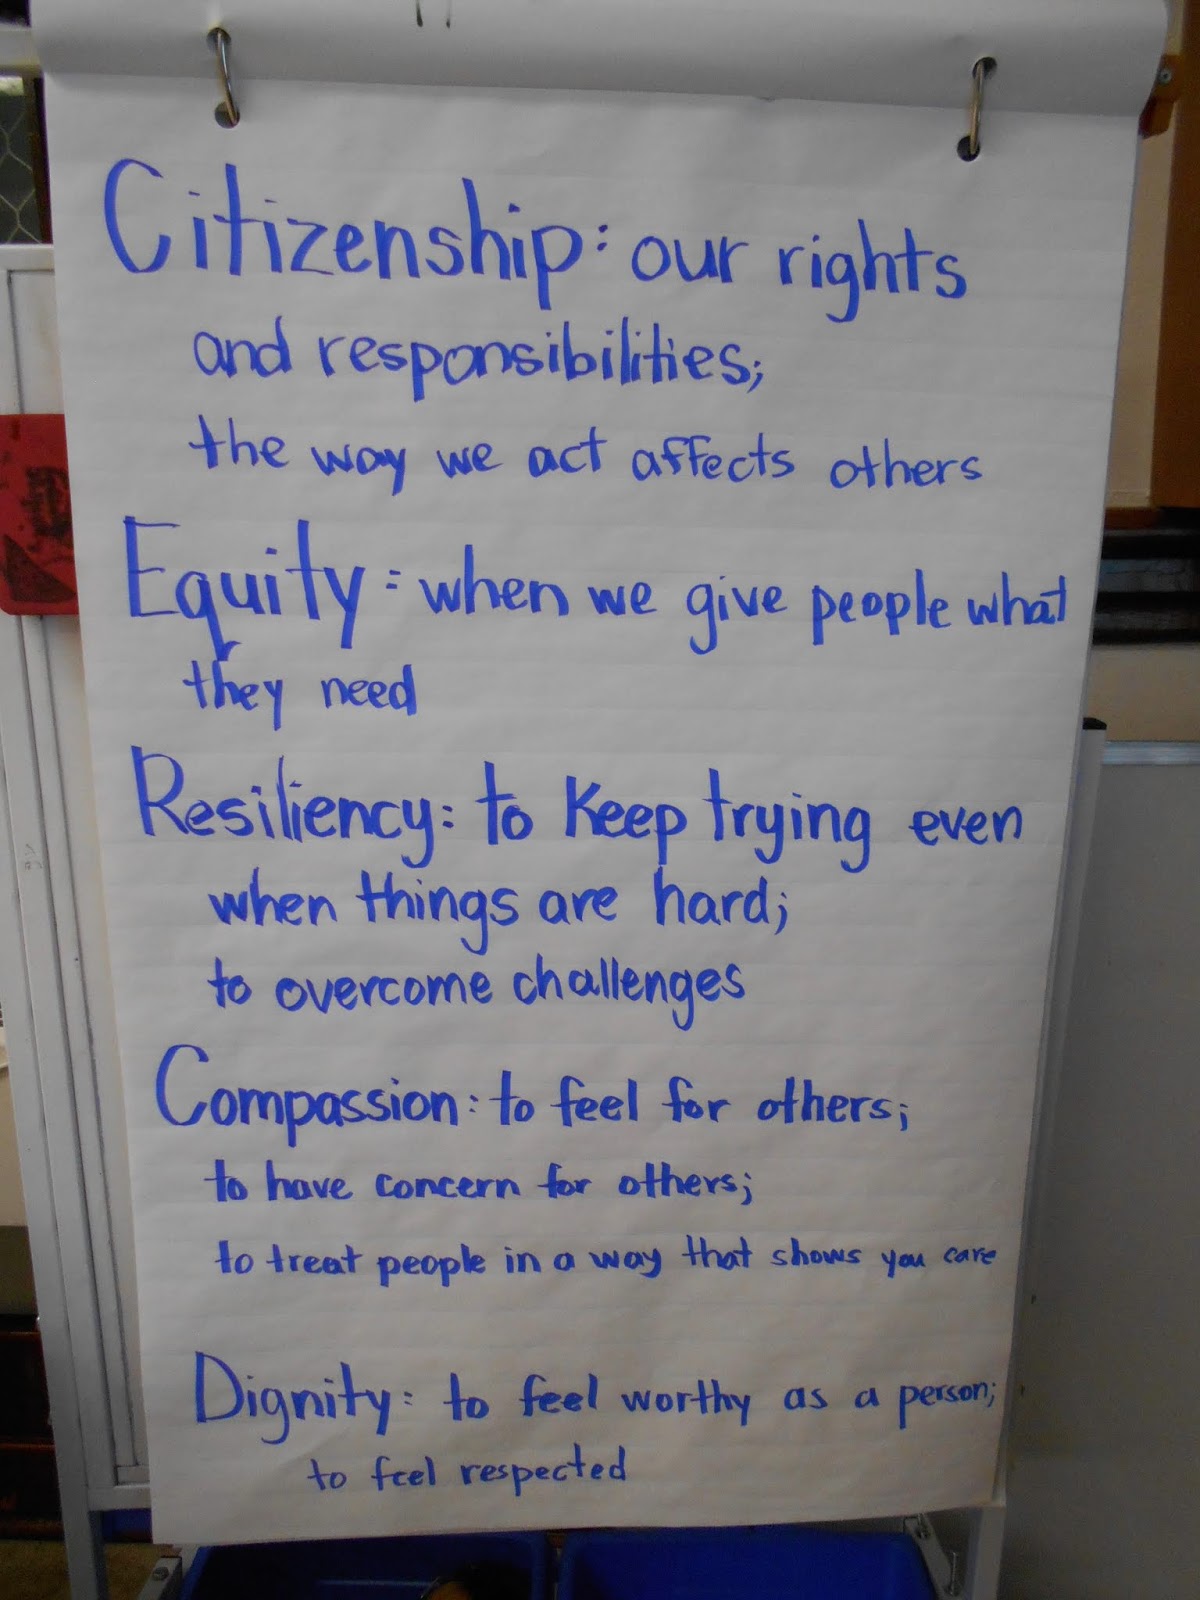 Citizenship: our rights
and responsibilities;
the way we act affects others
Equity: when we give people what
they need
Resiliency: to keep trying even
when things are hard;
to overcome challenges
Compassion: to feel for others;
to have concern for others;
to treat people in a way that shows you care
Dignity: to feel worthy as a person;
to feel respected